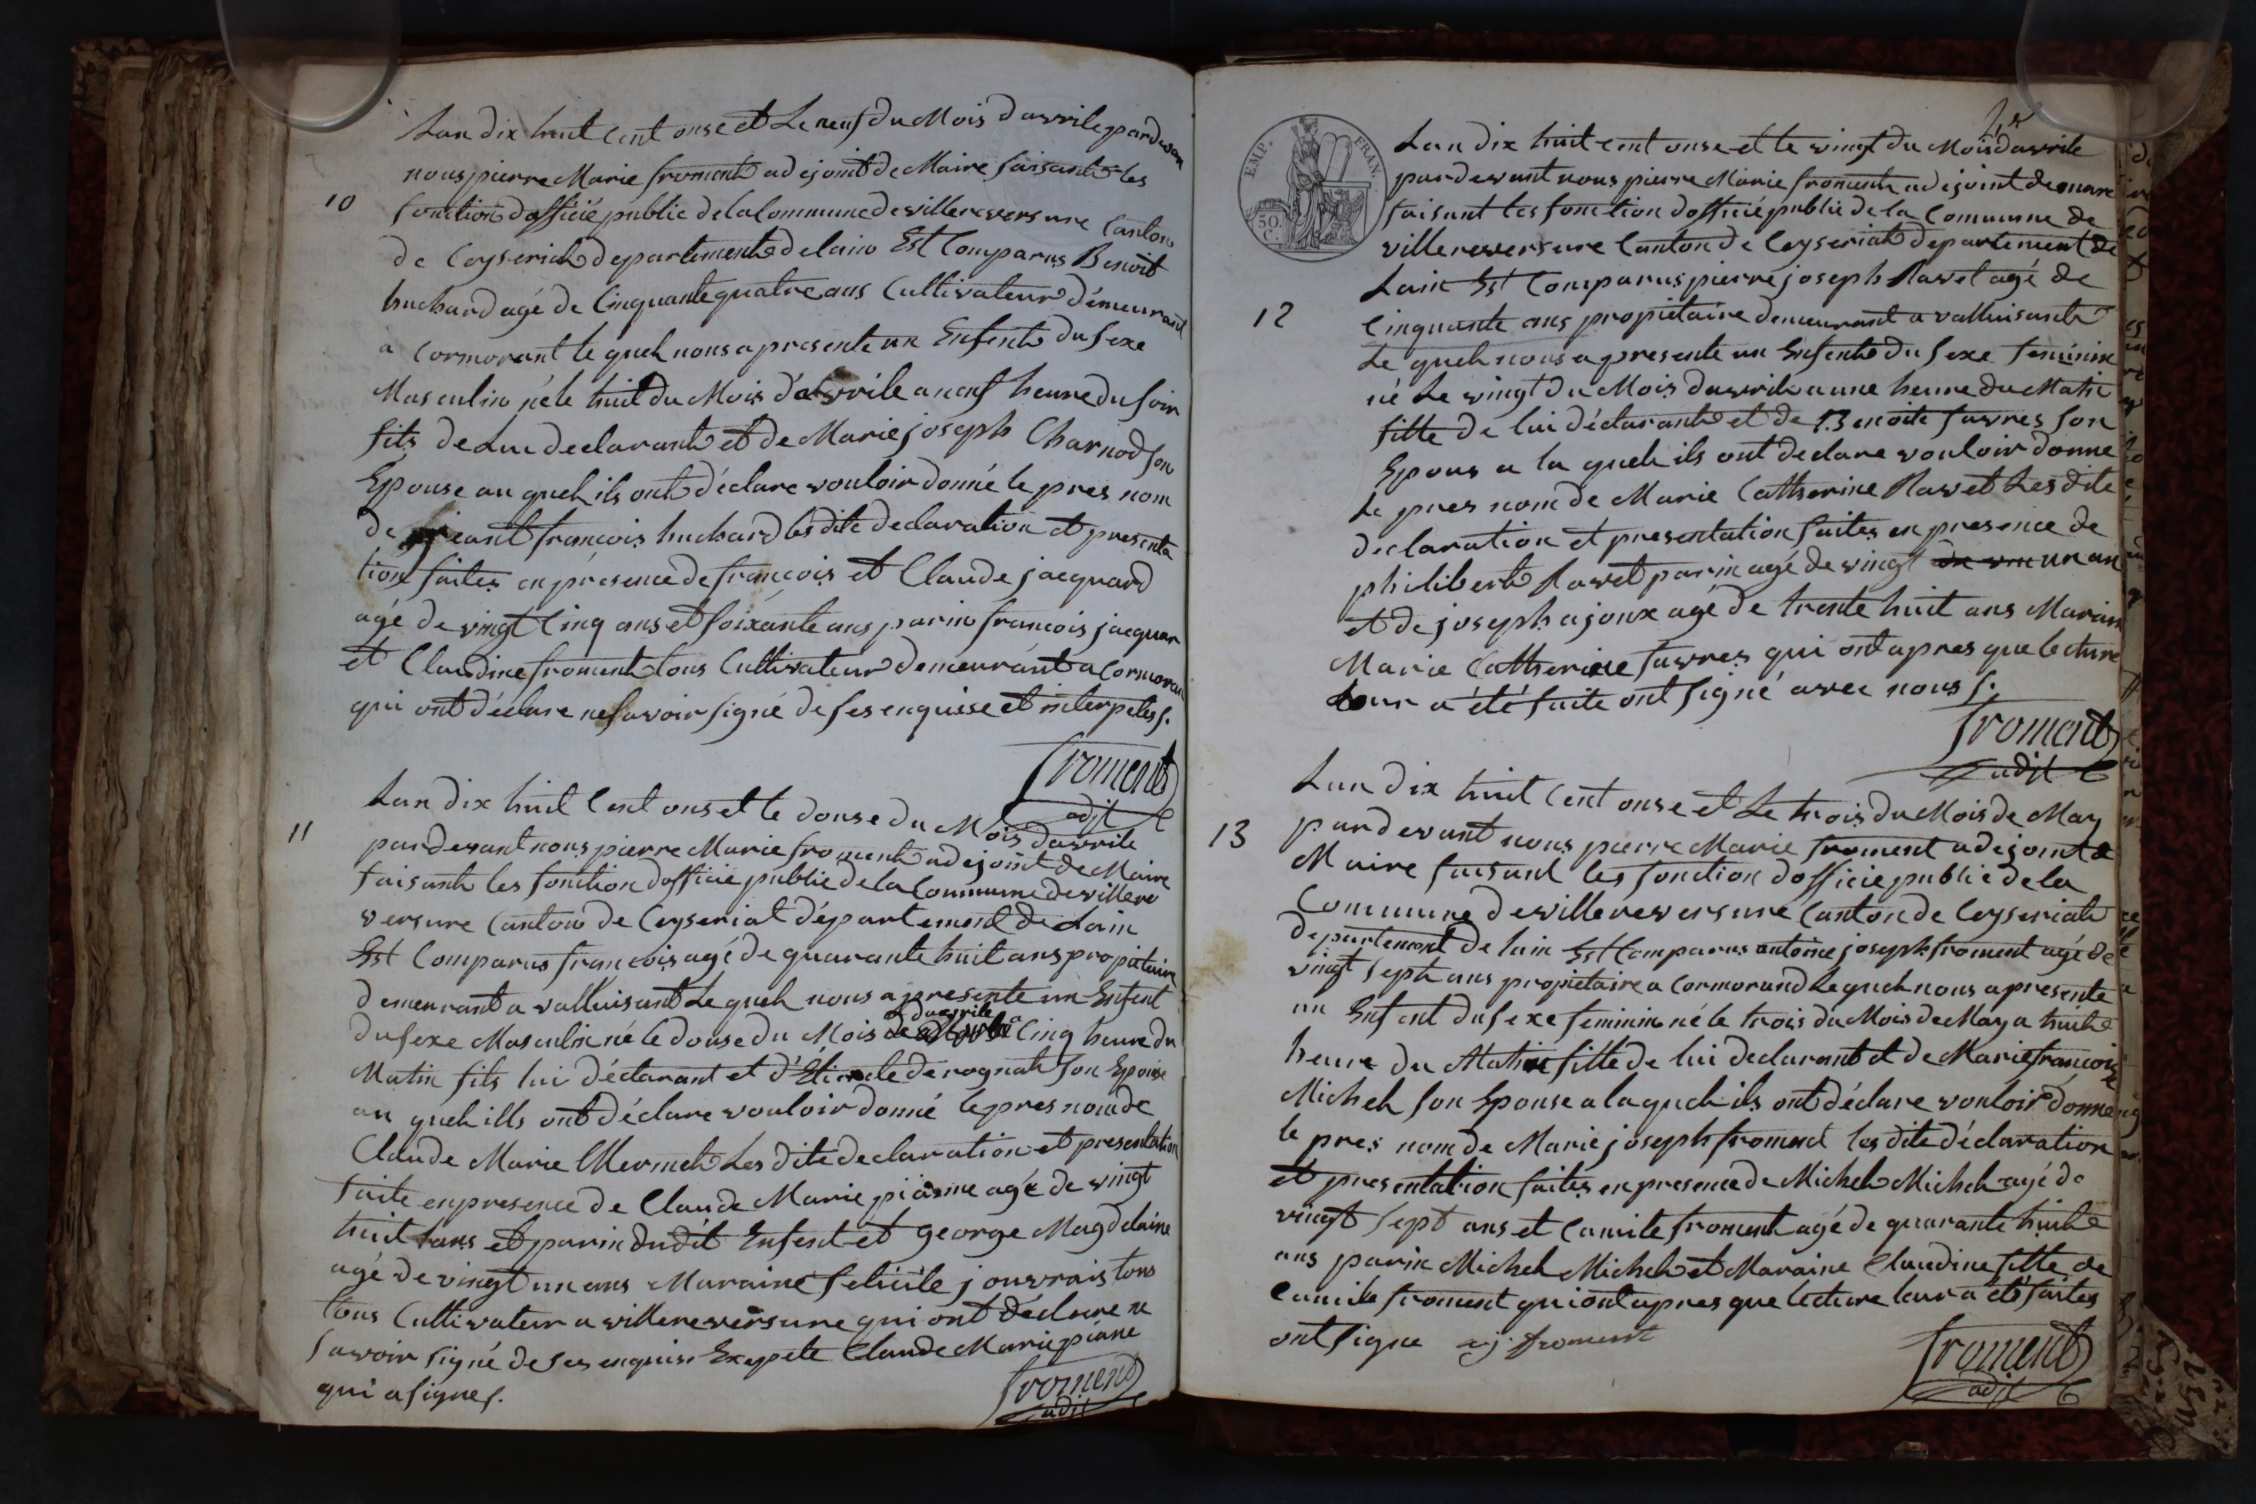 Lan dix huit Cent onse et Le neuf du Mois davrile pardevan
nous pierre Marie froment adejoint de Maire faisant les
10
fonction dofficié public de la Commune devillereversure Canton
de Ceyseriah departement delain Est Comparus Benoit
huchard agé de Cinquante quatre ans Cultivateur démeurant
a Cormorant le queh nous a presente un Enfent du sexe
Masculin né le huit du Mois d'avrile a neuf heure du soir
fits de Lui declarant et de Marie joseph Charnod son
Epouse au queh ils ont déclare vouloir donné le pres nom
de francois huchard les dite declaration et presenta
tion faites en présence de françois et Claude jacquard
agé de vingt Cinq ans et soixante ans parin francois jacquar
et Claudine froment tous Cultivateur demeurant a Cormoran
qui ont déclare ne savoir signé de ses enquisse et interpeles s.
froment
adjt
11
Lan dix huit Cent onse et le douse du Mois davrile
pardevant nous pierre Marie froment adejoint de Maire
faisant les fonction dofficié public de la Commune devillere
versure Canton de Ceyseriat département de Lain
Est Comparus francois agé de quarante huit ans propiétaire
demeurant a valluisant Le queh nous a presente un Enfent
davrile
du sexe Masculin né le douse du Mois a Cinq heure du
Matin fits lui déclarant et d' de rognat son Epouse
au queh ills ont déclare vouloir donné le pres nom de
Claude Marie Mermeh Les dite declaration et presentation
faite en presence de Claude Marie pianne agé de vingt
huit ans et parin dudit Enfent et george Magdelaine
agé de vingt un ans Maraine felicite jouvrais tous
tous Cultivateur a villereversure qui ont déclare ne
savoir signé de ses enquise Exepete Claude Marie piane
qui a signe s.
froment
adjt
EMP. FRAN.
50. C.
Lan dix huit cent onse et le vingt du Mois davrile
pardevant nous pierre Marie froment adejoint de mare
faisant les fonction dofficié public de la Commune de
villereversure Canton de Ceyseriat departement de
Lain Est Comparus pierre joseph Ravet agé de
12
Cinquante ans propiétaire demeurant a valluisant
Le queh nous a presente un Enfent du sexe feminin
né Le vingt du Mois davrile a une heure du Matin
fitte de lui déclarant et de Benoite favres son
Epous a la queh ils ont declare vouloir donne
Le pres nom de Marie Catherine Ravet Les dite
declaration et presentation faites en presence de
philibert Ravet parin agé de vingt un an
et de joseph ajoux agé de trente huit ans Marain
Marie Catherine favres qui ont apres que lecture
Leur a été faite ont signé avec nous s.
froment
adjt
Lan dix huit Cent onse et Le trois du Mois de May
13
pardevant nous pierre Marie froment adejoint de
Maire faisant les fonction dofficie public de la
Commune devillereversure Canton de Ceyseriah
departement de lain Est Comparus antoine joseph froment agé de
vingt seph ans propiétaire a Cormorand Le queh nous a presente
un Enfent du sexe feminin né le trois du Mois de May a huit
heure du Matin fitte de lui declarant et de Marie francoise
Micheh son Epouse a la queh ils ont déclare vouloir donne
le pres nom de Marie joseph froment les dite déclaration
et presentation faites en presence de Micheh Micheh agé de
vingt sept ans et Camile froment agé de quarante huit
ans parin Micheh Micheh et Maraine Claudine fitte de
Camile froment qui ont apres que lecture leur a été faites
ont signe aj froment
froment
adjt